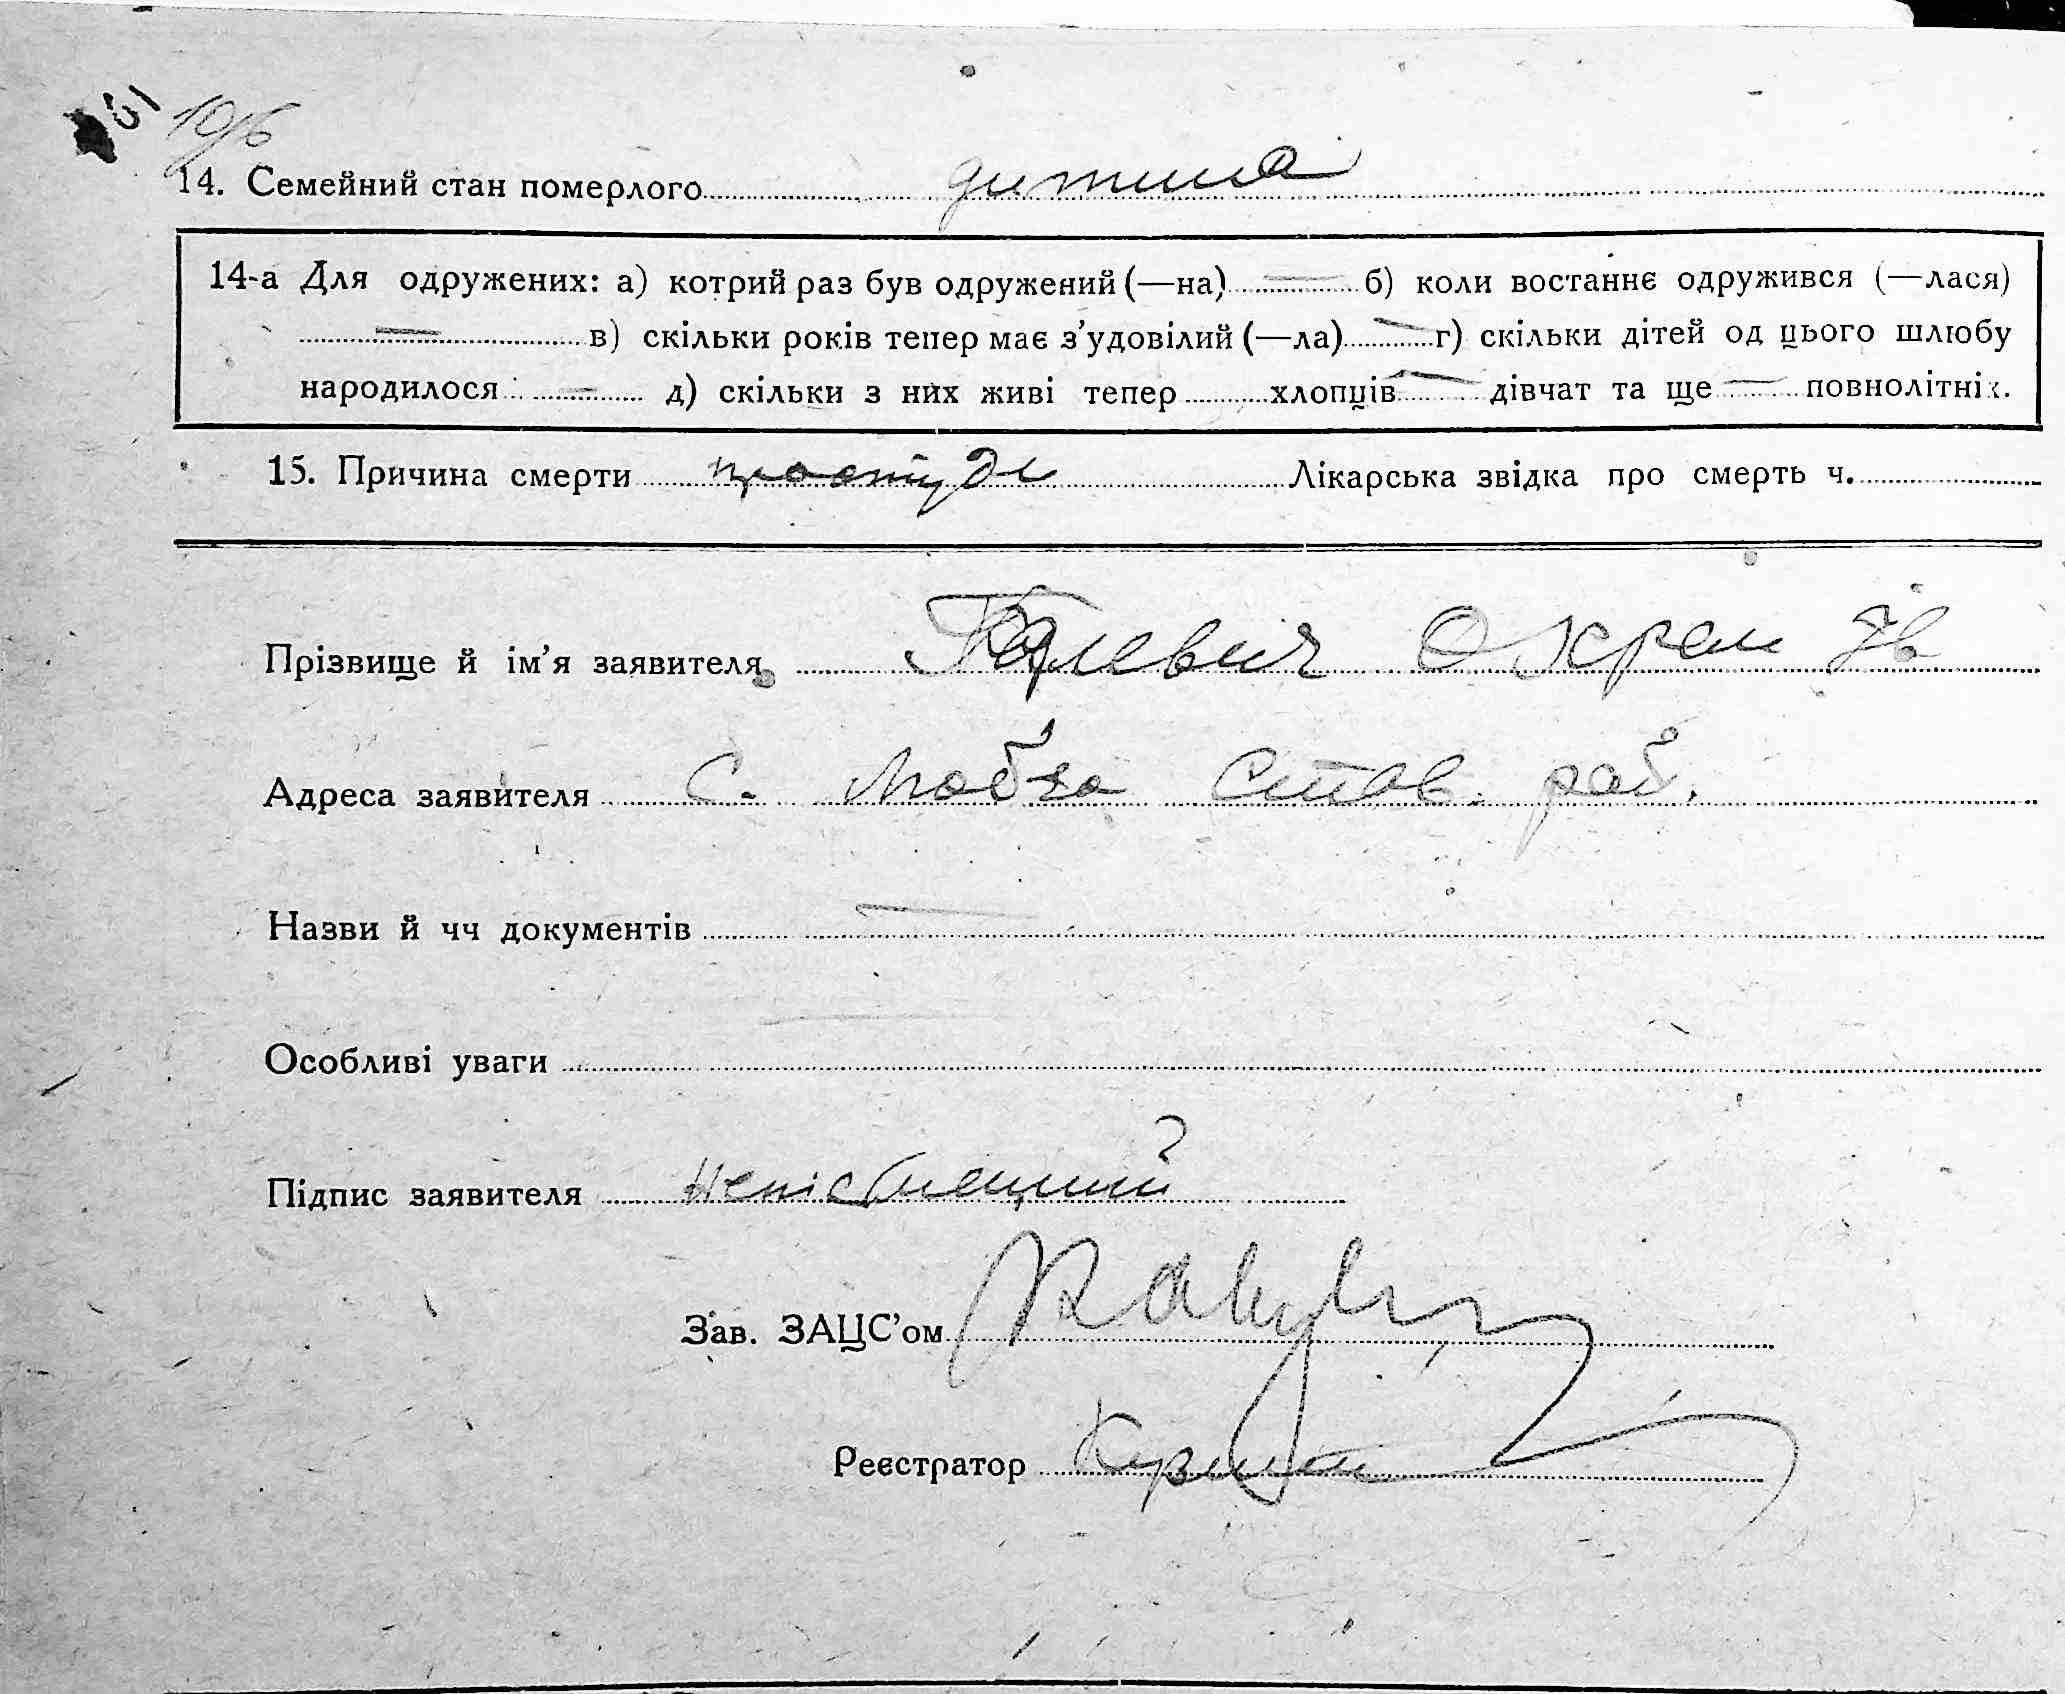 14. Семейний стан померлого дитина
14-а Для одружених: а) котрий раз був одружений (—на) — б) коли востаннє одружився (—лася)
— в) скільки років тепер має з’удовілий (—ла) — г) скільки дітей од цього шлюбу
народилося — д) скільки з них живі тепер хлопців — дівчат та ще — повнолітніх.
15. Причина смерти простуда Лікарська звідка про смерть ч.
Прізвище й ім’я заявителя Охрем Ів
Адреса заявителя С. Став. рай.
Назви й чч документів —
Особливі уваги
Підпис заявителя
Зав. ЗАЦС’ом
Реєстратор